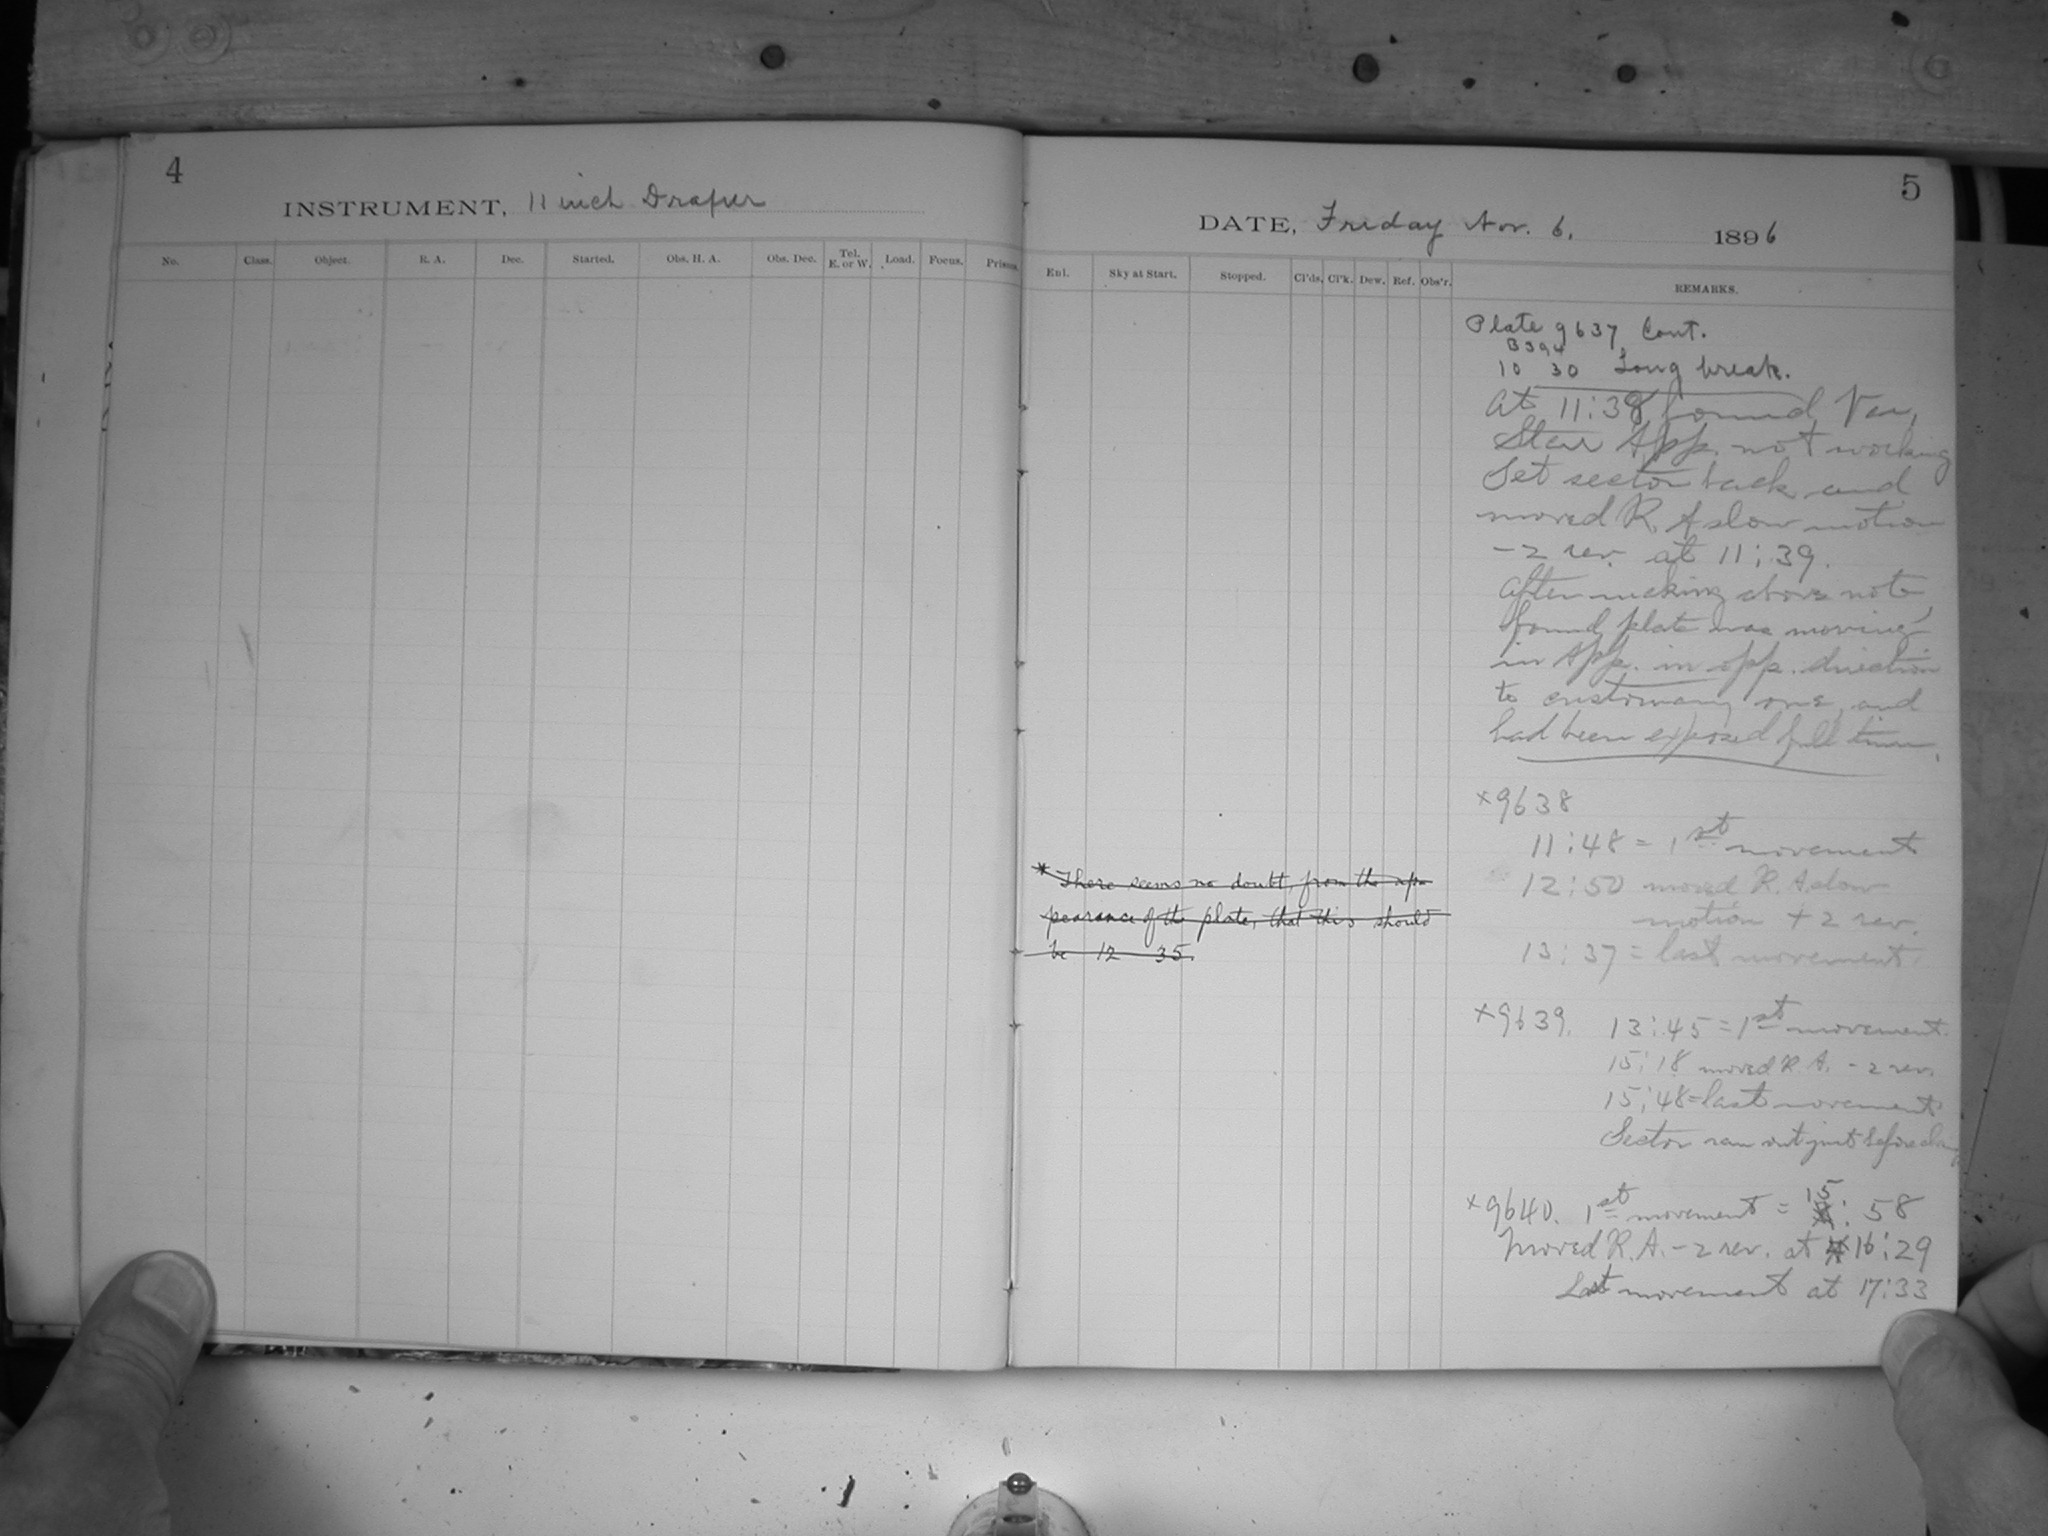 4
INSTRUMENT, 11 inch Draper
No. Class. Object. R. A. Dec. Started. Obs. H. A. Obs. Dec. Tel. E. or W. Load. Focus. Prisms.
5
DATE, Friday Nov. 6, 1896
Eul. Sky at Start. Stopped. Cl'ds. Cl'k. Dew. Ref. Obs'r. REMARKS.
Plate 9637 Cont.
B394
10 30 Long break.
At 11:38 found Var,
Star App. not working
Set sector back and
moved R A slow motion
-2 rev. at 11:39.
After making above note,
found plate was moving
in App. in opp. direction
to customary one, and
had been exposed full time.
x9638
11:48 = 1st movement
12:50 moved R. A slow
motion + 2 rev.
13:37 = last movement
* There seems no doubt, from the ap-
pearance of the plate, that this should
be 12 35.
x9639. 13:45 = 1st movement.
15:18 moved R A. - 2 rev.
15:48 = last movement
Sector ran out just before
x9640. 1st movement = 15: 58
Moved R. A. - 2 rev. at 16:29
Last movement at 17:33